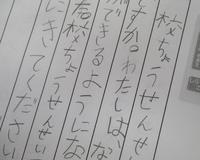 校ちょうせんせ
すか。わたしは、な
できるようにな
校ちょうせんせい
にきてください